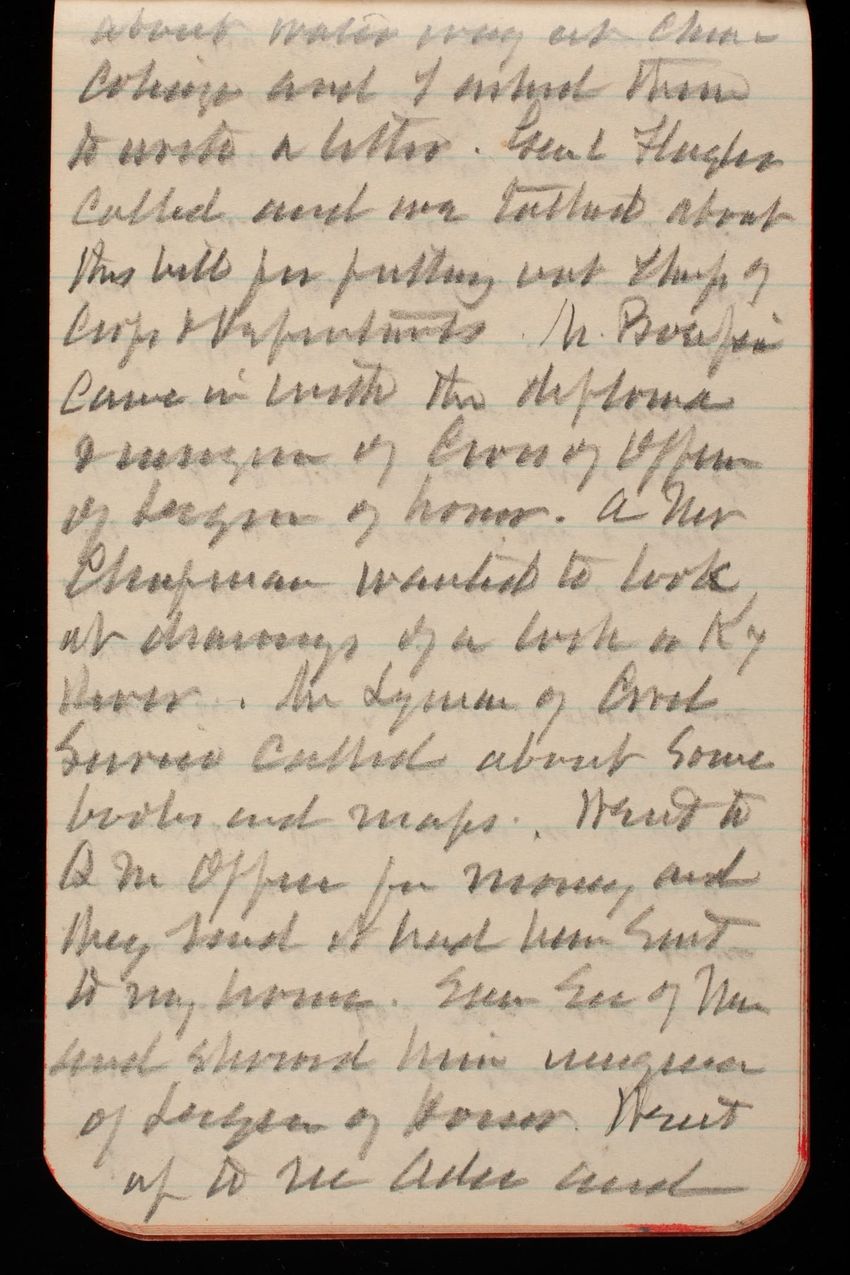 about water way at Chau-
and I asked them
to write a letter. Genl Flagler
called and we talked about
this bill for putting out Chfs of
Corps & Departments. Mr.
came in with the diploma
& insignia of Cross of Officer
of Legion of honor. A Mr
Chapman wanted to look
at drawings of a lock on Ky
River. Mr Lyman of Civil
Service called about some
books and maps. Went to
Q M Office for money and
they said it had been sent
to my home. Saw Sec of War
and showed him insignia
of Legion of Honor. Went
up to see and